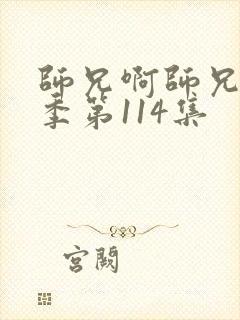 師兄啊師兄
季第114集
宮闕